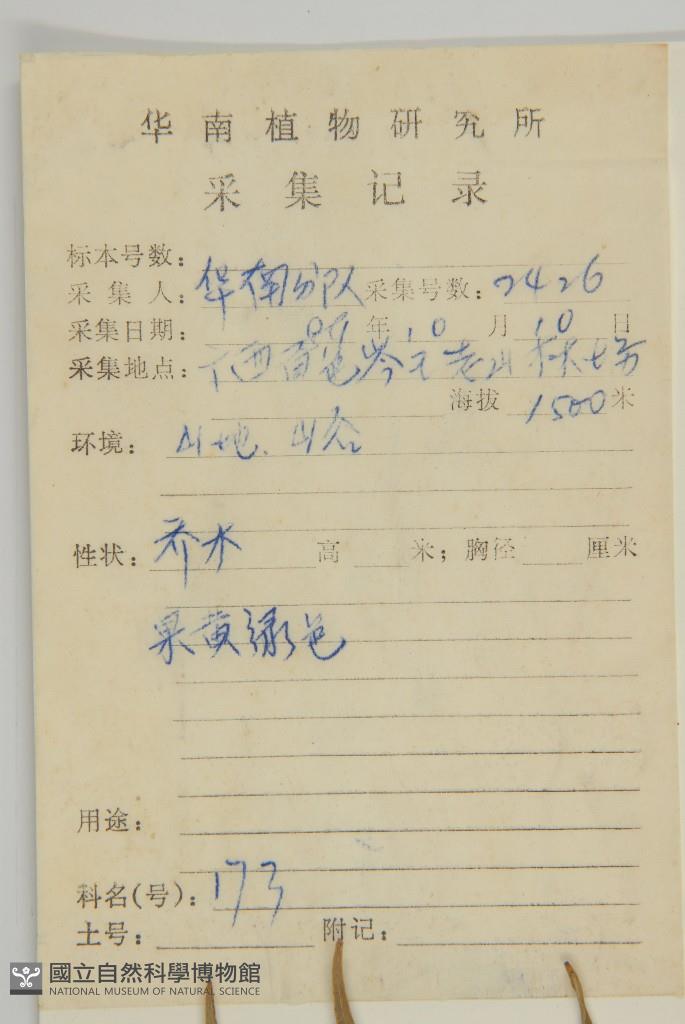 华南植物研究所
采集记录
标本号数：
采集人：华南分队 采集号数：2426
采集日期： 年 10 月 10 日
采集地点：广西百色岑王老山林场
海拔 1500 米
环境：山地.山谷
性状：乔木 高 米；胸径 厘米
果黄绿色
用途：
科名(号)：173
土号： 附记：
國立自然科學博物館
NATIONAL MUSEUM OF NATURAL SCIENCE